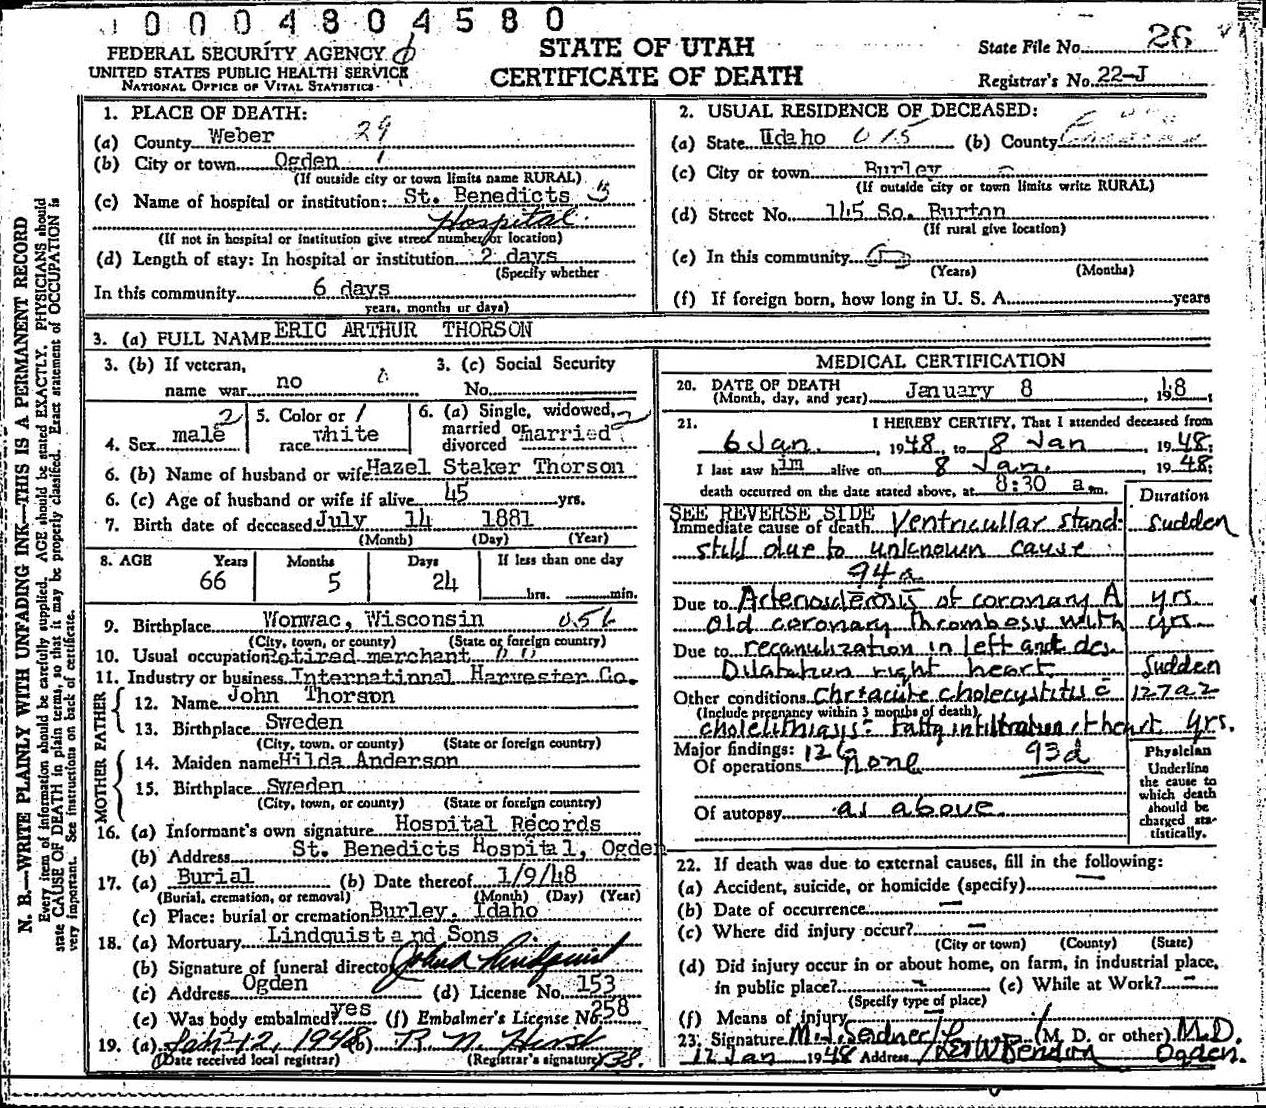 0004804580
FEDERAL SECURITY AGENCY
UNITED STATES PUBLIC HEALTH SERVICE
NATIONAL OFFICE OF VITAL STATISTICS
STATE OF UTAH
CERTIFICATE OF DEATH
State File No. 26
Registrar's No. 22-J
N. B.—WRITE PLAINLY WITH UNFADING INK—THIS IS A PERMANENT RECORD
Every item of information should be carefully supplied. AGE should be stated EXACTLY. PHYSICIANS should
state CAUSE OF DEATH in plain terms, so that it may be properly classified. Exact statement of OCCUPATION is
very important. See instructions on back of certificate.
1. PLACE OF DEATH:
(a) County Weber 29
(b) City or town Ogden 1
(If outside city or town limits name RURAL)
(c) Name of hospital or institution: St. Benedicts
Hospital
(If not in hospital or institution give street number or location)
(d) Length of stay: In hospital or institution 2 days
(Specify whether
In this community 6 days
years, months or days)
2. USUAL RESIDENCE OF DECEASED:
(a) State Idaho 015 (b) County
(c) City or town Burley
(If outside city or town limits write RURAL)
(d) Street No. 145 So. Burton
(If rural give location)
(e) In this community
(Years) (Months)
(f) If foreign born, how long in U. S. A. years
3. (a) FULL NAME ERIC ARTHUR THORSON
3. (b) If veteran,
name war no
3. (c) Social Security
No.
4. Sex male 2
5. Color or
race white 1
6. (a) Single, widowed,
married or
divorced married 2
6. (b) Name of husband or wife Hazel Staker Thorson
6. (c) Age of husband or wife if alive 45 yrs.
7. Birth date of deceased July 14 1881
(Month) (Day) (Year)
8. AGE Years Months Days If less than one day
66 5 24 hrs. min.
9. Birthplace Wonwac, Wisconsin
(City, town, or county) (State or foreign country)
10. Usual occupation Retired merchant
11. Industry or business International Harvester Co.
FATHER
12. Name John Thorson
13. Birthplace Sweden
(City, town, or county) (State or foreign country)
MOTHER
14. Maiden name Hilda Anderson
15. Birthplace Sweden
(City, town, or county) (State or foreign country)
16. (a) Informant's own signature Hospital Records
(b) Address St. Benedicts Hospital, Ogden
17. (a) Burial (b) Date thereof 1/9/48
(Burial, cremation, or removal) (Month) (Day) (Year)
(c) Place: burial or cremation Burley, Idaho
18. (a) Mortuary Lindquist and Sons
(b) Signature of funeral director John A Lindquist
(c) Address Ogden (d) License No. 153
(e) Was body embalmed? yes (f) Embalmer's License No. 258
19. (a) Jan 12, 1948 (b)
(Date received local registrar) (Registrar's signature)
MEDICAL CERTIFICATION
20. DATE OF DEATH
(Month, day, and year) January 8, 1948
21. I HEREBY CERTIFY, That I attended deceased from
6 Jan., 1948, to 8 Jan, 1948;
I last saw him alive on 8 Jan., 1948;
death occurred on the date stated above, at 8:30 a.m.
Duration
SEE REVERSE SIDE
Immediate cause of death Ventricullar stand- sudden
still due to unknown cause
94a
Due to Arteriosclerosis of coronary A yrs.
old coronary thrombosis with yrs.
Due to recanulization in left ant des.
Dilatation right heart. Sudden
Other conditions Chr+acute cholecystitis c 127a2
(Include pregnancy within 3 months of death)
cholelithiasis: Fatty infiltration of heart yrs.
Major findings:
Of operations None 93d
Of autopsy as above.
Physician
Underline
the cause to
which death
should be
charged sta-
tistically.
22. If death was due to external causes, fill in the following:
(a) Accident, suicide, or homicide (specify) —
(b) Date of occurrence —
(c) Where did injury occur? —
(City or town) (County) (State)
(d) Did injury occur in or about home, on farm, in industrial place,
in public place? — (e) While at Work? —
(Specify type of place)
(f) Means of injury —
23. Signature (M. D. or other) M.D.
12 Jan 1948 Address Ogden.